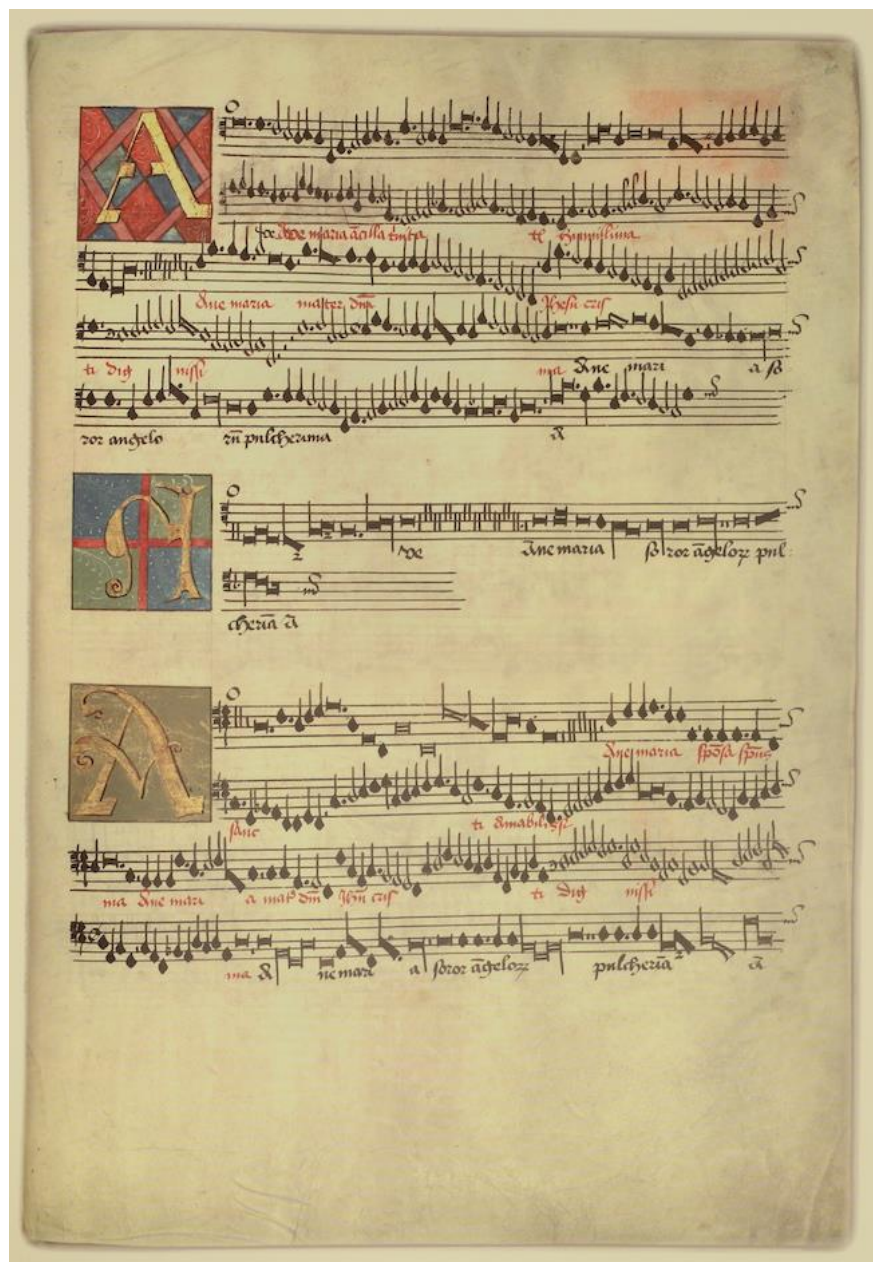 A
Ave maria ācilla trīta tͭ hymillima
Ave maria mater dn̄i Jhesū cris
ti dig nissi ma Ave mari a so
ror angelo rū pulcherima A
A
ve Ave maria so ror āgeloꝝ pul
cheria A
A
Ave maria sposa spūs
sanc ti Amabilissi
ma Ave mari a mat dn̄i Jhū cris ti dig nissi
ma A ve mari a soror āgeloꝝ pulcheria A